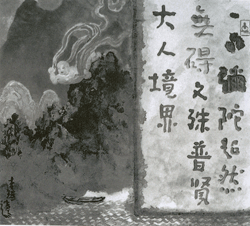 一彌陀然
無碍文殊普賢
大人境界